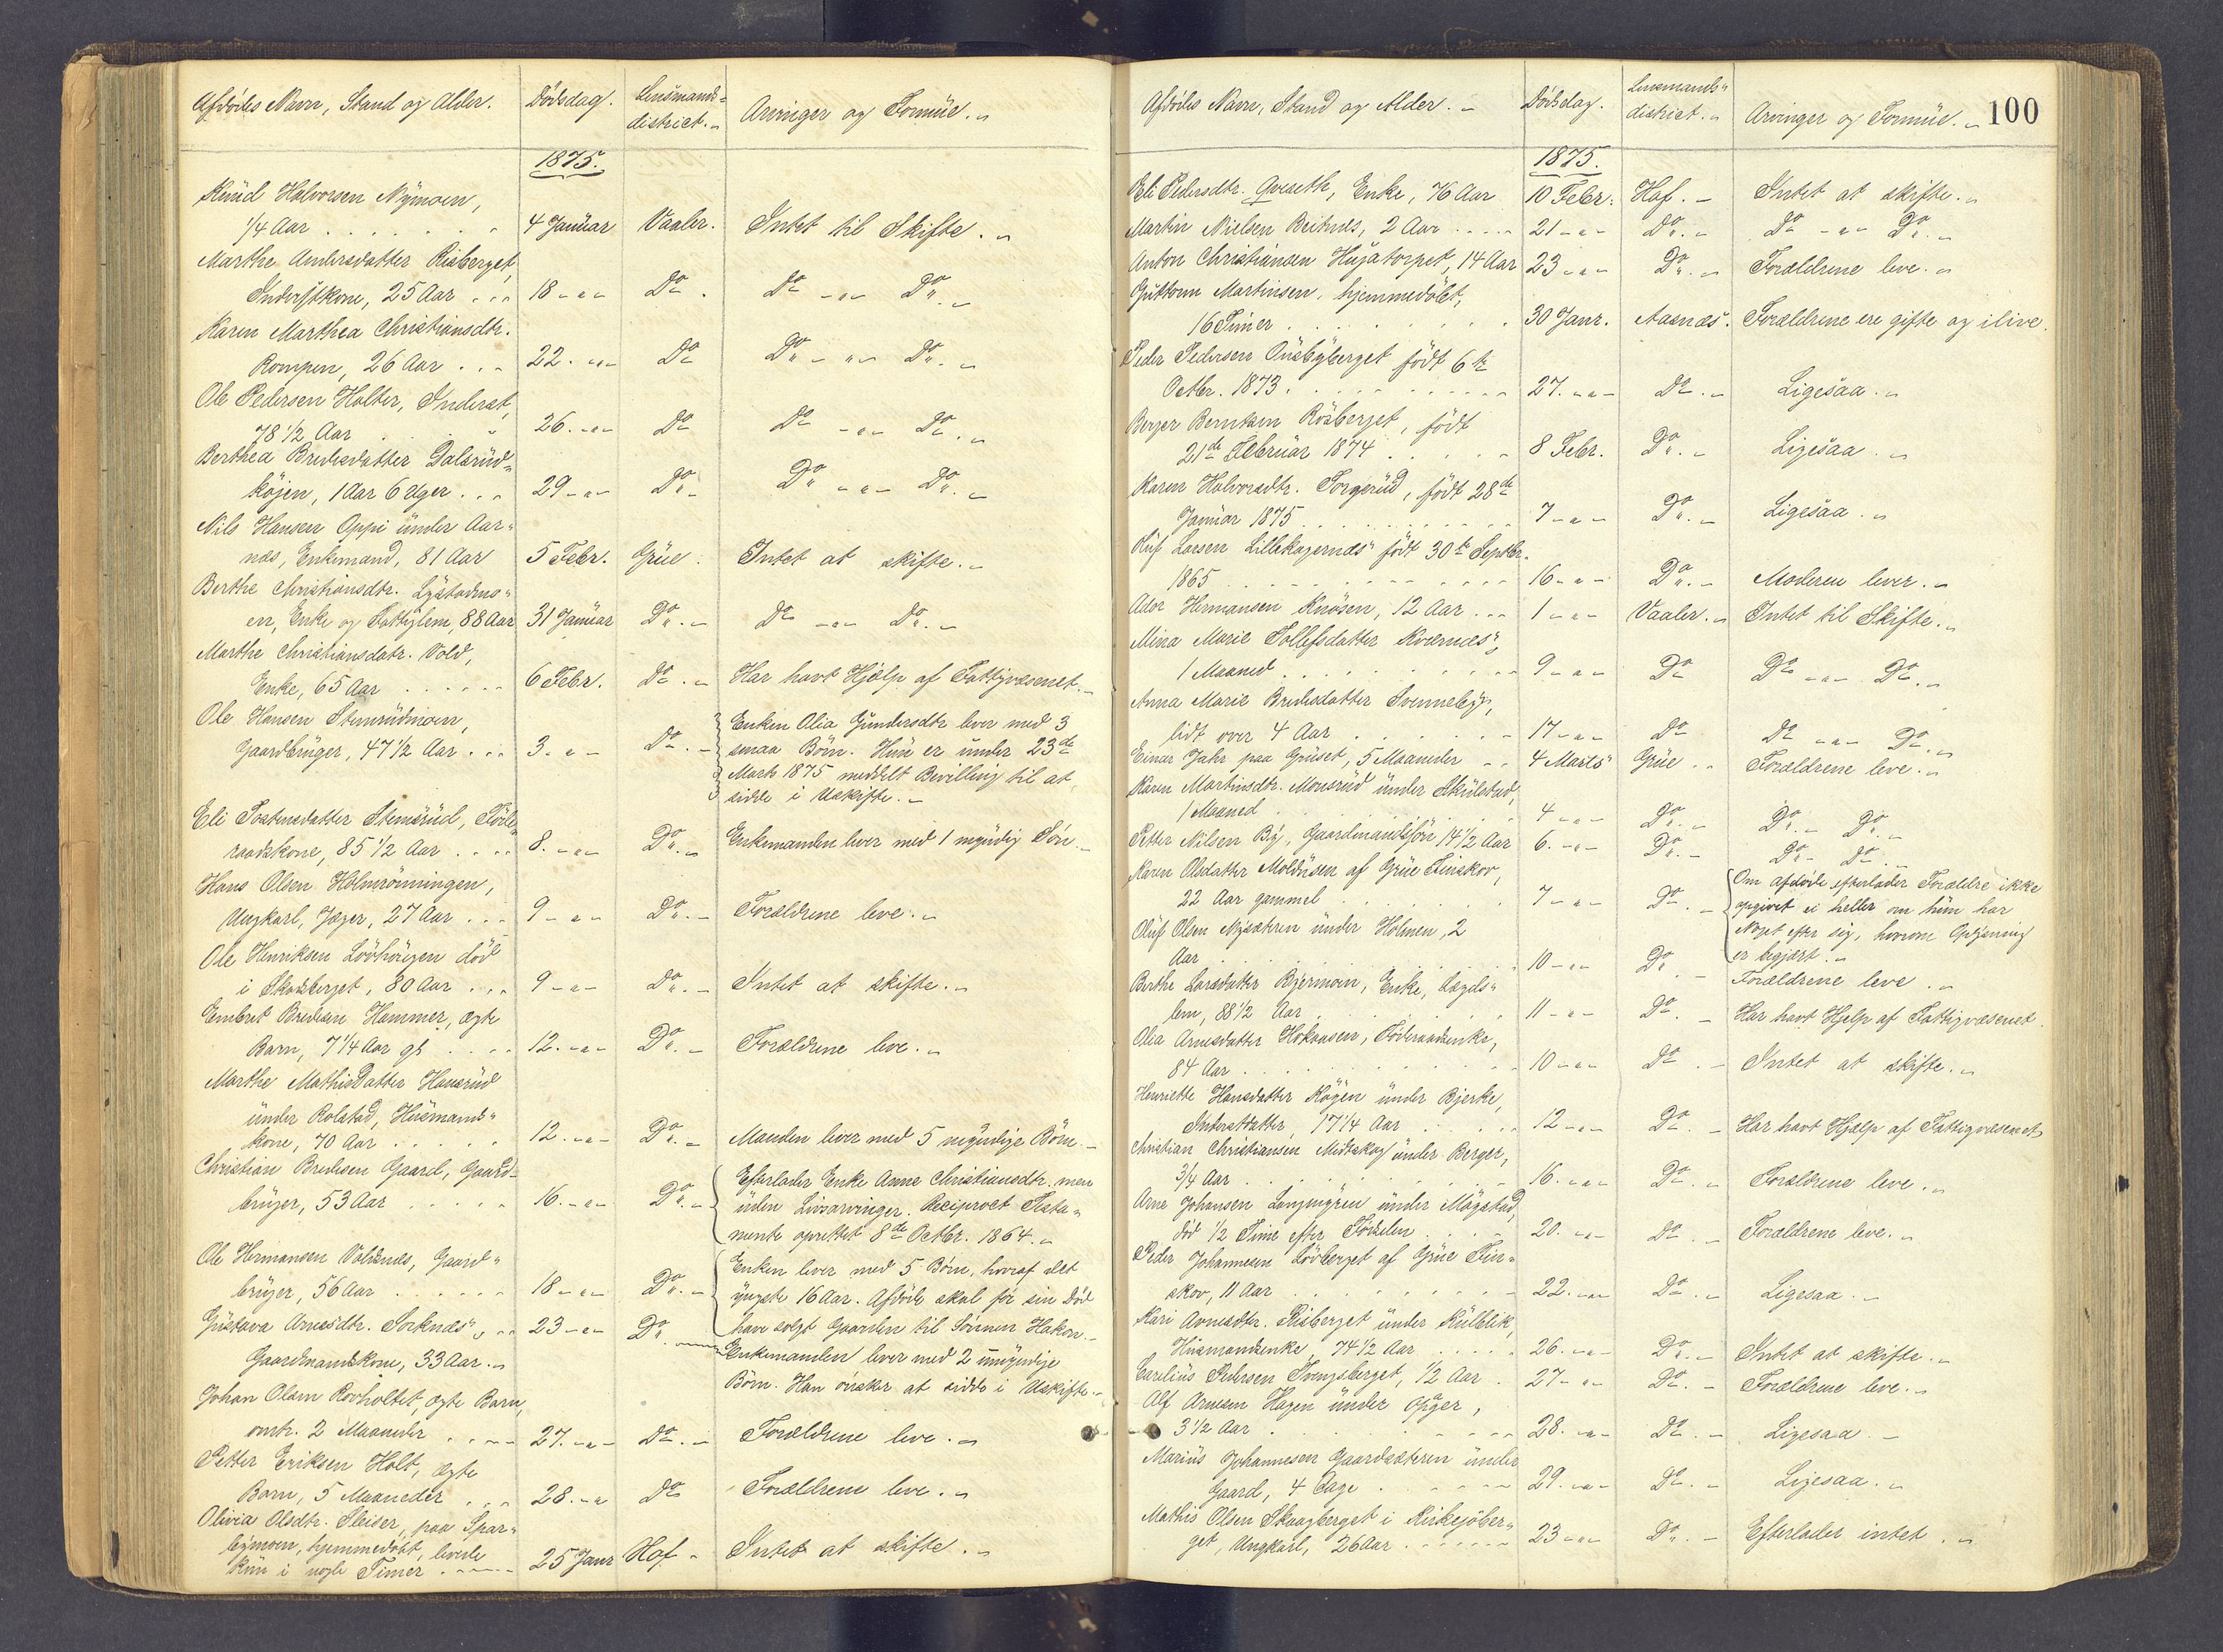 Afdödes Navn, Stand og Alder. Dödsdag. Lensmands- district. Arvinger og Formüe.
1875.
Knüd Halvorsen Nÿmoen,
1/4 Aar . . . 4 Januar Vaaler. Intet til Skifte.
Marthe Andersdatter Risberget,
Inderstkone, 25 Aar . . 18 -"- Do. Do -"- Do.
Karen Marthea Christiansdtr.
Rompen, 26 Aar . . . 22. -"- Do Do. -"- Do.
Ole Pedersen Holter, Inderst,
78 1/2 Aar . . 26. -"- Do Do -"- Do.
Berthea Bredesdatter Dalsrüd-
köjen, 1 Aar 6 Uger . . . 29 -"- Do. Do. -"- Do.
Nils Hansen Oppi ünder Aar-
næs, Enkemand, 81 Aar 5 Febr. Grüe. Intet at skifte.
Berthe Christiansdtr. Lÿstadmo-
en, Enke og Fattiglem, 88 Aar 31 Januar Do. Do -"- Do.
Marthe Christiansdatr. Vold,
Enke, 65 Aar . . . . 6 Febr. Do. Har havt Hjælp af Fattigvæsenet.
Ole Hansen Stemsrüdmoen,
Gaardbrüger, 47 1/2 Aar . . . 3. -"- Do.
Enken Olia Gündersdtr lever med 3
smaa Börn. Hün er ünder 23de
Marts 1875 meddelt Bevilling til at
sidde i Uskifte.
Eli Tostensdatter Stemsrüd, Föde-
raadskone, 85 1/2 Aar . . . . 8. -"- Do. Enkemanden lever med 1 mÿndig Sön.
Hans Olsen Holmrönningen,
Ungkarl, Jæger, 27 Aar . . . 9 -"- Do. Forældrene leve.
Ole Henriksen Lövhöugen död
i Skasberget, 80 Aar . . . 9 -"- Do. Intet at skifte.
Embret Bredesen Hammer, ægte
Barn, 7 1/4 Aar gl. . . . 12. -"- Do. Forældrene leve.
Marthe Mathisdatter Hansrüd
ünder Rolstad, Hüsmands-
kone, 70 Aar . . . . . 12. -"- Do. Manden lever med 5 mÿndige Börn.
Christian Bredesen Gaard, Gaard-
brüger, 53 Aar . . . . 16. -"- Do.
Efterlader Enke Anne Christiansdtr. men
üden Livsarvinger. Reciproct Testa-
mente oprettet 8de Octbr. 1864.
Ole Hermansen Voldnæs, Gaard-
brüger, 56 Aar . . . . . 18 -"- Do.
Enken lever med 5 Börn, hvoraf det
ÿngste 16 Aar. Afdöde skal för sin Död
have solgt Gaarden til Sönnen Hakon.
Güstava Arnesdtr. Sorknæs, . . 23 -"- Do.
Gaardmandskone, 33 Aar.
Enkemanden lever med 2 ümÿndige
Börn. Han önsker at sidde i Uskifte.
Johan Olsen Rovholtet, ægte Barn,
omtr. 2 Maaneder . . . 27. -"- Do. Forældrene leve.
Petter Eriksen Holt, ægte
Barn, 5 Maaneder . . . 28. -"- Do Forældrene leve.
Olivia Olsdtr. Sleiser, paa Spar-
bÿmoen, hjemmedöbt, levede
kün i nogle Timer . . . 25 Janr Hof. Intet at skifte.
100
Afdödes Navn, Stand og Alder. Dödsdag. Lensmands- district. Arvinger og Formüe.
1875.
Eli Pedersdtr. Qveseth, Enke, 76 Aar 10 Febr. Hof. Intet at skifte.
Martin Nielsen Beitnæs, 2 Aar . . . 21 -"- Do. Do -"- Do.
Anton Christiansen Hügatorpet, 14 Aar 23 -"- Do. Forældrene leve.
Güttorm Martinsen, hjemmedöbt,
16 Timer . . . . . 30 Janr. Aasnæs. Forældrene ere gifte og ilive.
Peder Pedersen Oüsbÿberget födt 6te
Octbr. 1873. . . . . 27. -"- Do. Ligesaa.
Berger Berntsen Rösberget, födt
21de Februar 1874 . . . . 8 Febr. Do. Ligesaa.
Karen Halvorsdtr. Torgerüd, födt 28de
Januar 1875 . . . . . 7 -"- Do. Ligesaa.
Olüf Larsen Lillekagernæs födt 30te Septbr.
1865 . . . . . 16 -"- Do. Moderen lever.
Ador Hermansen Knösen, 12 Aar . . . 1 -"- Vaaler. Intet til Skifte.
Mina Marie Tollefsdatter Kvernæs,
1 Maaned . . . . . 9 -"- Do Do -"- Do.
Anna Marie Bredesdatter Svennebÿ,
lidt over 4 Aar . . . . 17 -"- Do Do -"- Do.
Einar Jahr paa Grüset, 5 Maaneder . . 4 Marts Grüe. Forældrene leve.
Karen Martinsdtr. Monsrüd ünder Skülstad,
1 Maaned . . . . . 4 -"- Do. Do. Do.
Petter Nilsen Bÿ, Gaardmandssön 14 1/2 Aar 6. -"- Do. Do. Do.
Karen Olsdatter Moldüsen af Grüe Finskov,
22 Aar gammel . . . . 7 -"- Do.
Om afdöde efterlader Forældre ikke
opgivet ei heller om hün har
Noget efter sig, hvorom Oplÿsning
er begjært.
Olüf Olsen Nÿsætren ünder Holmen, 2
Aar . . . . . 10 -"- Do. Forældrene leve.
Berthe Larsdatter Bjermoen, Enke, Lægds-
lem, 88 1/2 Aar . . . . 11 -"- Do. Har havt Hjelp af Fattigvæsenet.
Olia Arnesdatter Hokaasen, Föderaadsenke,
84 Aar . . . . . 10 -"- Do. Intet at skifte.
Henriette Hansdatter Köÿen ünder Bjerke,
Inderstdatter, 17 1/4 Aar . . . 12 -"- Do. Har havt Hjælp af Fattigvæsenet
Christian Christiansen Midtskog ünder Berger,
3/4 Aar . . . . . 16. -"- Do. Forældrene leve.
Arne Johansen Langengen ünder Mögstad,
död 1/2 Time efter Födselen . . . 20. -"- Do. Forældrene leve.
Peder Johannesen Lövberget af Grüe Fin-
skov, 11 Aar . . . . . 22. -"- Do. Ligesaa.
Kari Arnesdtr. Risberget ünder Külblik,
Hüsmandsenke, 74 1/2 Aar . . . 26. -"- Do. Intet at skifte.
Carelius Pedersen Svengsberget, 1/2 Aar . 27 -"- Do. Forældrene leve.
Alf Arnesen Hagen ünder Opager,
3 1/2 Aar . . . . . 28. -"- Do. Ligesaa.
Marius Johannesen Gaardsætren ünder
Gaard, 4 Dage . . . . 29. -"- Do. Ligesaa.
Mathis Olsen Skaagberget i Kirkesjöber-
get, Ungkarl, 26 Aar . . . . 23 -"- Do. Efterlader intet.